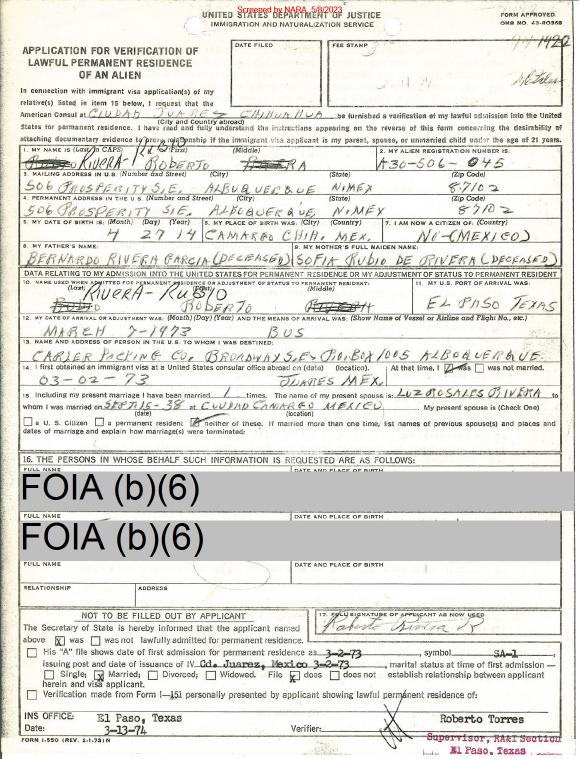 Screened by NARA, 5/8/2023
UNITED STATES DEPARTMENT OF JUSTICE
IMMIGRATION AND NATURALIZATION SERVICE
FORM APPROVED
OMB NO. 43-R0358
APPLICATION FOR VERIFICATION OF
LAWFUL PERMANENT RESIDENCE
OF AN ALIEN
DATE FILED
FEE STAMP
In connection with immigrant visa application(s) of my
relative(s) listed in item 15 below, I request that the
American Consul at CIUDAD JUAREZ CHIHUAHUA be furnished a verification of my lawful admission into the United
(City and Country abroad)
States for permanent residence. I have read and fully understand the instructions appearing on the reverse of this form concerning the desirability of
attaching documentary evidence to prove relationship if the immigrant visa applicant is my parent, spouse, or unmarried child under the age of 21 years.
1. MY NAME IS (Last in CAPS) (First) (Middle)
RIVERA-RUBIO ROBERTO
2. MY ALIEN REGISTRATION NUMBER IS:
A30-506-045
3. MAILING ADDRESS IN U.S. (Number and Street) (City) (State) (Zip Code)
506 PROSPERITY S.E. ALBUQUERQUE N.MEX 87102
4. PERMANENT ADDRESS IN U.S. (Number and Street) (City) (State) (Zip Code)
506 PROSPERITY S.E. ALBUQUERQUE N.MEX 87102
5. MY DATE OF BIRTH IS: (Month) (Day) (Year)
4 27 14
6. MY PLACE OF BIRTH WAS: (City) (Country)
CAMARGO CHIH. MEX.
7. I AM NOW A CITIZEN OF: (Country)
NO-(MEXICO)
8. MY FATHER'S NAME:
BERNARDO RIVERA GARCIA (DECEASED)
9. MY MOTHER'S FULL MAIDEN NAME:
SOFIA RUBIO DE RIVERA (DECEASED)
DATA RELATING TO MY ADMISSION INTO THE UNITED STATES FOR PERMANENT RESIDENCE OR MY ADJUSTMENT OF STATUS TO PERMANENT RESIDENT
10. NAME USED WHEN ADMITTED FOR PERMANENT RESIDENCE OR ADJUSTMENT OF STATUS TO PERMANENT RESIDENT:
(Last) (First) (Middle)
RIVERA-RUBIO ROBERTO
11. MY U.S. PORT OF ARRIVAL WAS:
EL PASO TEXAS
12. MY DATE OF ARRIVAL OR ADJUSTMENT WAS: (Month) (Day) (Year) AND THE MEANS OF ARRIVAL WAS: (Show Name of Vessel or Airline and Flight No., etc.)
MARCH 7-1973 BUS
13. NAME AND ADDRESS OF PERSON IN THE U.S. TO WHOM I WAS DESTINED:
PACKING CO. BROADWAY S.E. P.O. BOX 1005 ALBUQUERQUE
14. I first obtained an immigrant visa at a United States consular office abroad on (date) (location). At that time, I was was not married.
03-02-73 JUAREZ MEX.
15. Including my present marriage I have been married 1 times. The name of my present spouse is: LUZ ROSALES RIVERA to
whom I was married on SEPT-15-38 at CIUDAD CAMARGO MEXICO. My present spouse is (Check One)
(date) (location)
a U. S. Citizen a permanent resident neither of these. If married more than one time, list names of previous spouse(s) and places and
dates of marriage and explain how marriage(s) were terminated:
16. THE PERSONS IN WHOSE BEHALF SUCH INFORMATION IS REQUESTED ARE AS FOLLOWS:
FULL NAME DATE AND PLACE OF BIRTH
FOIA (b)(6)
FULL NAME DATE AND PLACE OF BIRTH
FOIA (b)(6)
FULL NAME DATE AND PLACE OF BIRTH
RELATIONSHIP ADDRESS
NOT TO BE FILLED OUT BY APPLICANT
17. FULL SIGNATURE OF APPLICANT AS NOW USED
Roberto Rivera R
The Secretary of State is hereby informed that the applicant named
above x was was not lawfully admitted for permanent residence.
His "A" file shows date of first admission for permanent residence as 3-2-73, symbol SA-1
issuing post and date of issuance of IV Cd. Juarez, Mexico 3-2-73, marital status at time of first admission—
Single; x Married; Divorced; Widowed. File x does does not establish relationship between applicant
herein and visa applicant.
Verification made from Form I-151 personally presented by applicant showing lawful permanent residence of:
INS OFFICE: El Paso, Texas
Date: 3-13-74
Verifier:
Roberto Torres
Supervisor, RA&I Section
El Paso, Texas
FORM I-550 (REV. 3-1-73) N